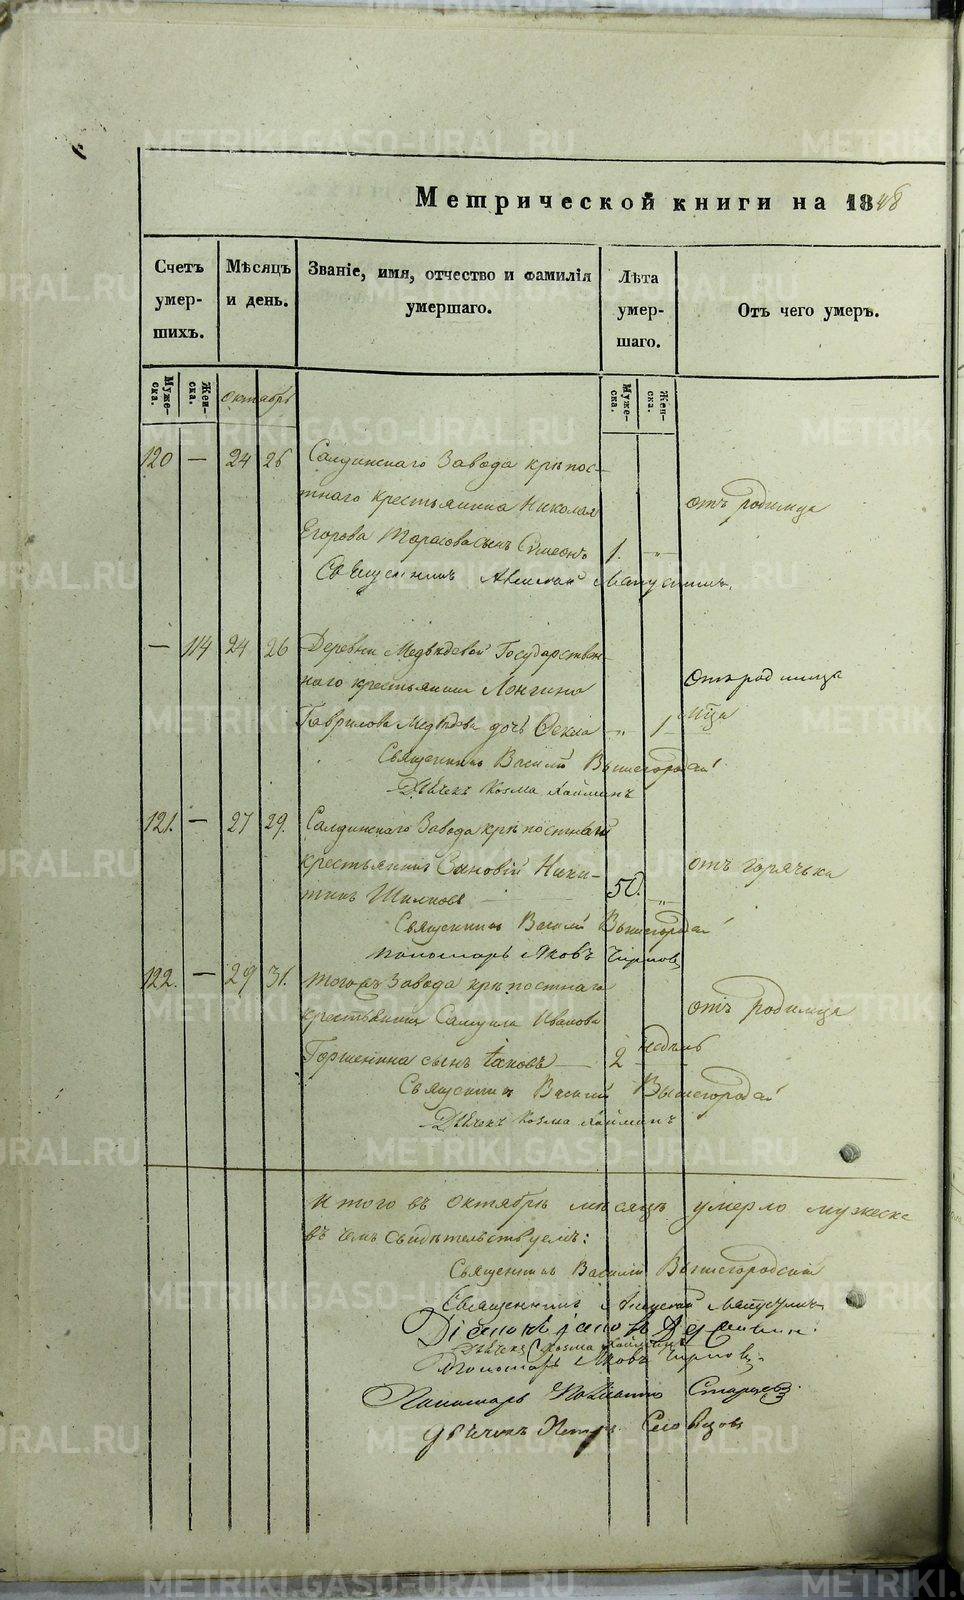 Метрической книги на 1848
Счетъ умер- шихъ.
Мѣсяцъ и день.
Званіе, имя, отчество и фамилія умершаго.
Лѣта умер- шаго.
Отъ чего умеръ.
Муже- ска. Жен- ска. Октябрь Муже- ска. Жен- ска.
120 — 24 26 Салдинскаго Завода крѣпос-
тнаго крестьянина Николая отъ родимца
Егорова Тарасова сынъ Симеонъ 1. „
Священникъ
— 114 24 26 Деревни Медвѣдевой Государствен-
наго крестьянина Лонгина отъ родимца
Гаврилова Медвѣдева дочь Фекла „ 1
Священникъ Василій Вышегородскій
Дьячекъ Козма
121. — 27 29. Салдинскаго Завода крѣпостный
крестьянинъ Зиновій Ники- отъ горячки
тинъ Шиловъ 50. „
Священникъ Василій Вышегородскій
Пономарь Яковъ
122. — 29 31. того жъ Завода крѣпостнаго
крестьянина Самуила Иванова отъ родимца
Горшенина сынъ Іаковъ 2 недѣль
Священникъ Василій Вышегородскій
Дьячекъ Козма
Итого въ Октябрѣ мѣсяцѣ умерло мужеска
въ чемъ свидѣтельствуемъ:
Священникъ Василій Вышегородскій
Священникъ
Діаконъ
Дьячекъ Козма
Пономарь Яковъ
Пономарь
Дьячекъ Петръ Словцовъ
METRIKI.GASO-URAL.RU